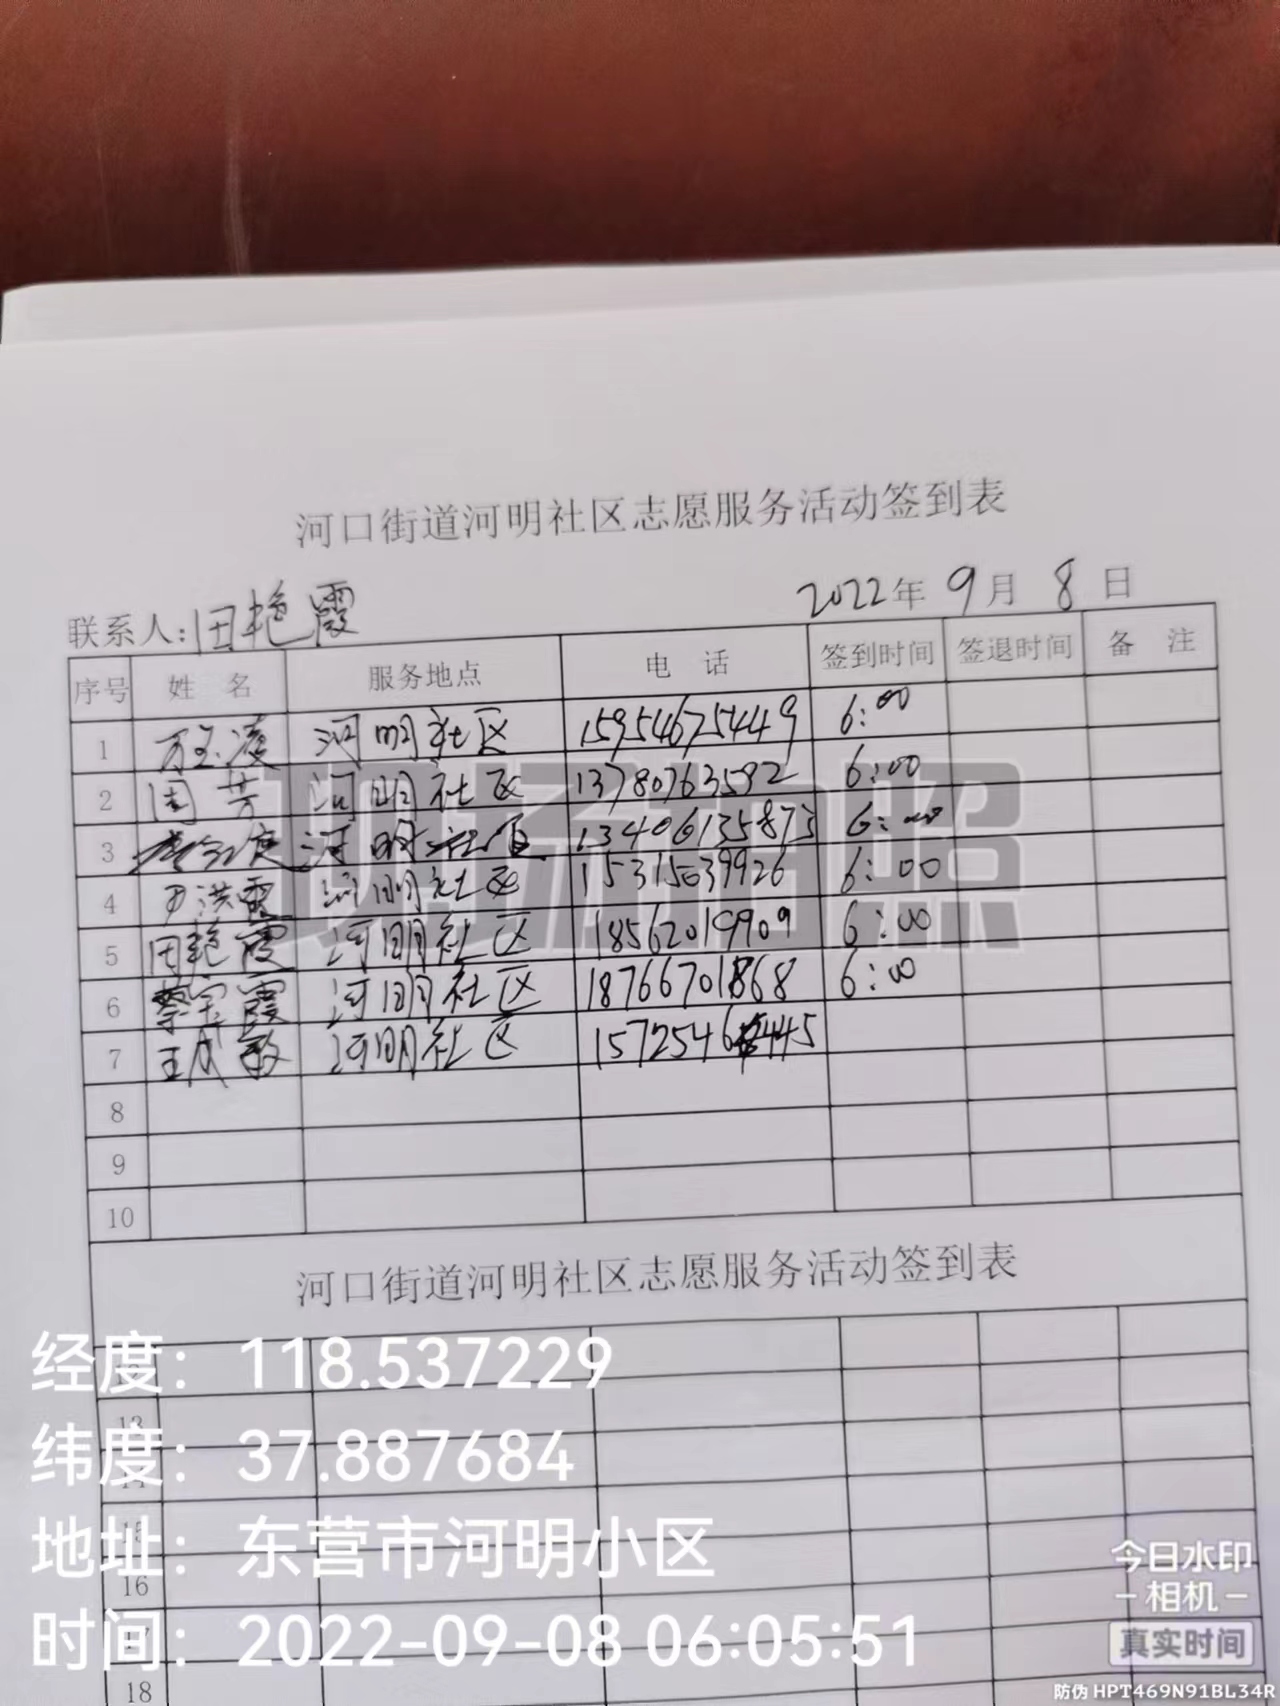 河口街道河明社区志愿服务活动签到表
联系人:田艳霞 2022年 9月 8日
序号 姓 名 服务地点 电 话 签到时间 签退时间 备 注
1 河明社区 15954675449 6:00
2 周芳 河明社区 13780763592 6:00
3 河明社区 13406135873 6:00
4 尹洪霞 河明社区 15315039926 6:00
5 田艳霞 河明社区 18562019909 6:00
6 蔡宝霞 河明社区 18766701868 6:00
7 王成敏 河明社区
8
9
10
河口街道河明社区志愿服务活动签到表
13
14
15
16
17
18
现场拍照
经度: 118.537229
纬度: 37.887684
地址: 东营市河明小区
时间: 2022-09-08 06:05:51
今日水印
-相机-
真实时间
防伪 HPT469N91BL34R